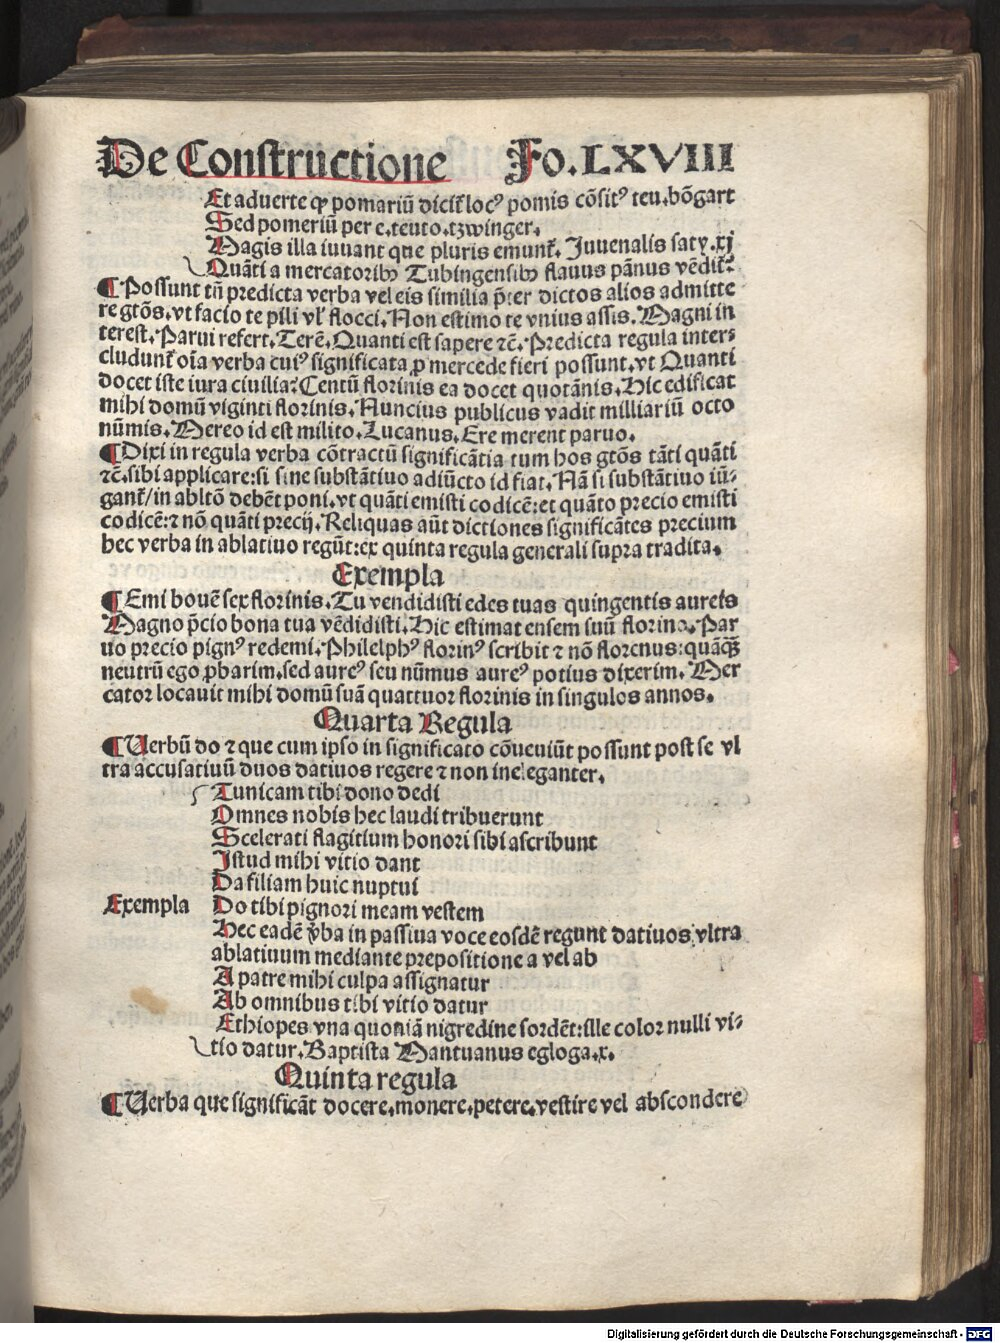 De Constructione Fo. LXVIII
Et aduerte ꝙ pomariū dicit̃ locꝰ pomis cōsitꝰ teu. bōgart
Sed pomeriū per e. teuto. tzwinger.
Magis illa iuuant que pluris emunt̃. Juuenalis satꝩ. xj
Quāti a mercatoribꝫ Tubingensibꝫ flauus pānus vēdit̃:
¶ Possunt tñ predicta verba vel eis similia p̄ter dictos alios admitte
re gtōs. vt facio te pili vl̓ flocci. Non estimo te vnius assis. Magni in
terest. Parui refert. Terē. Quanti est sapere ⁊c̄. Predicta regula inter⸗
cludunt̃ oīa verba cuiꝰ significata ꝓ mercede fieri possunt. vt Quanti
docet iste iura ciuilia: Centū florinis ea docet quotānis. Hic edificat
mihi domū viginti florinis. Nuncius publicus vadit milliariū octo
nūmis. Mereo id est milito. Lucanus. Ere merent paruo.
¶ Dixi in regula verba cōtractū significātia tum hos gtōs tāti quāti
⁊c̄. sibi applicare: si sine substātiuo adiūcto id fiat. Nā si substātiuo iū⸗
gant̃/ in abltō debēt poni. vt quāti emisti codicē: et quāto precio emisti
codicē: ⁊ nō quāti precij. Reliquas aūt dictiones significātes precium
hec verba in ablatiuo regūt: ex quinta regula generali supra tradita.
Exempla
¶ Emi bouē sex florinis. Tu vendidisti edes tuas quingentis aureis
Magno p̄cio bona tua vēdidisti. Hic estimat ensem suū florino. Par
uo precio pignꝰ redemi. Philelphꝰ florinꝰ scribit ⁊ nō florenus: quāꝗ̄ꝫ
neutrū ego ꝓbarim. sed aureꝰ seu nūmus aureꝰ potius dixerim. Mer
cator locauit mihi domū suā quattuor florinis in singulos annos.
Quarta Regula
¶ Uerbū do ⁊ que cum ipso in significato cōueniūt possunt post se vl
tra accusatiuū duos datiuos regere ⁊ non ineleganter.
Tunicam tibi dono dedi
Omnes nobis hec laudi tribuerunt
Scelerati flagitium honori sibi ascribunt
Istud mihi vitio dant
Da filiam huic nuptui
Exempla Do tibi pignori meam vestem
Hec eadē v̓ba in passiua voce eosdē regunt datiuos vltra
ablatiuum mediante prepositione a vel ab
A patre mihi culpa assignatur
Ab omnibus tibi vitio datur
Ethiopes vna quoniā nigredine sordēt: ille color nulli vi⸗
tio datur. Baptista Mantuanus egloga. x.
Quinta regula
¶ Uerba que significāt docere. monere. petere. vestire vel abscondere
Digitalisierung gefördert durch die Deutsche Forschungsgemeinschaft - DFG